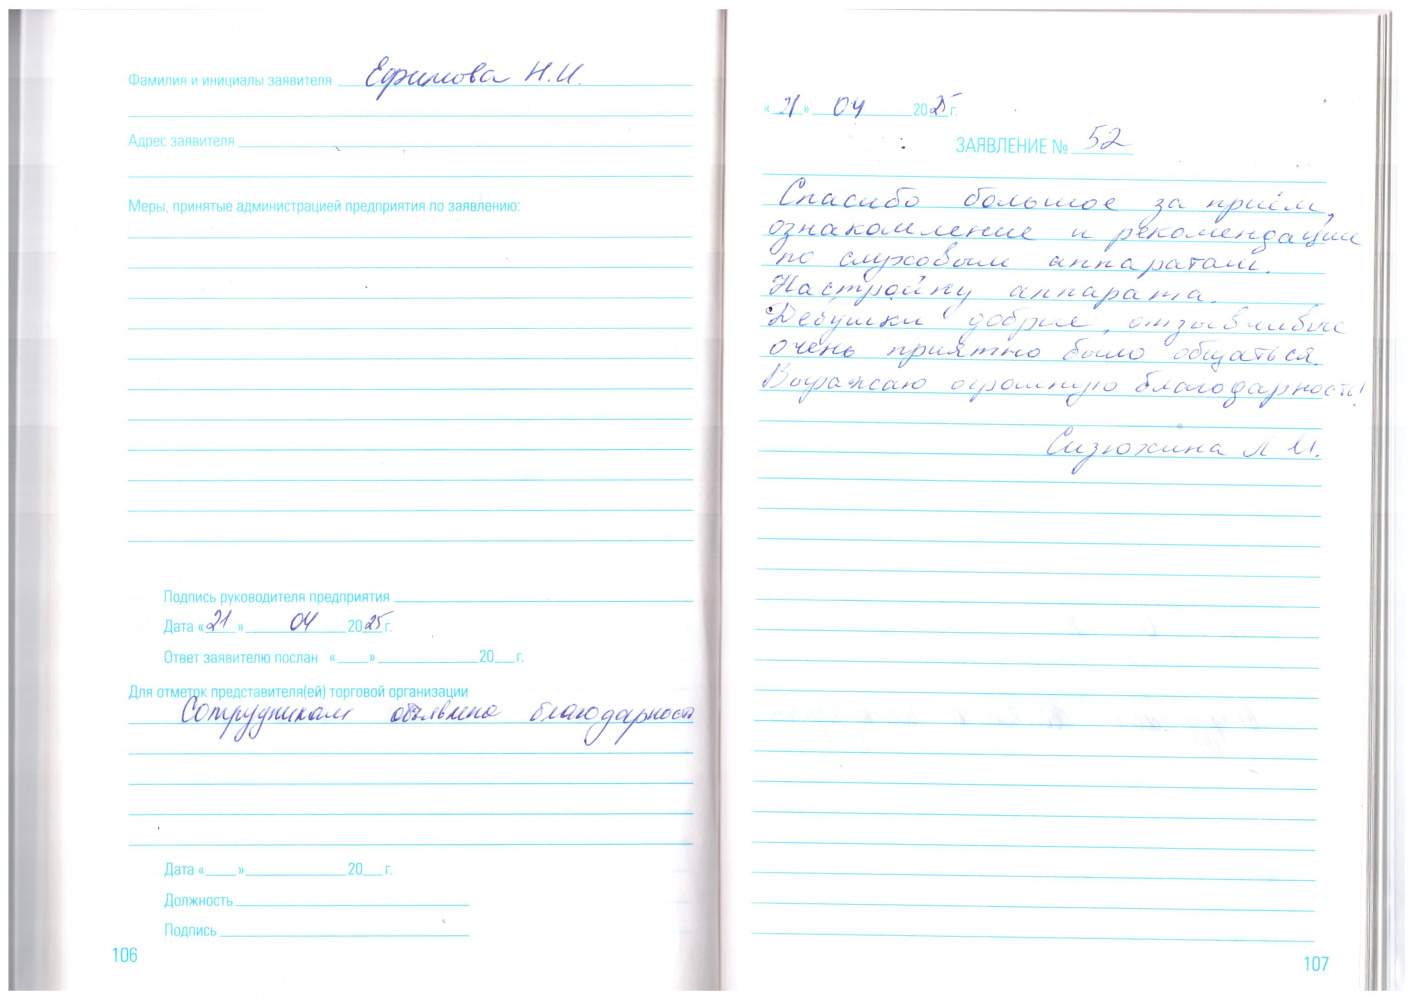 Фамилия и инициалы заявителя Ефимова Н.И.
Адрес заявителя
Меры, принятые администрацией предприятия по заявлению:
Подпись руководителя предприятия
Дата «21» 04 2025 г.
Ответ заявителю послан « » 20 г.
Для отметок представителя(ей) торговой организации
Сотрудникам объявлена благодарность
Дата « » 20 г.
Должность
Подпись
106
«21» 04 2025 г.
ЗАЯВЛЕНИЕ № 52
Спасибо большое за приём,
ознакомление и рекомендации
по слуховым аппаратам.
Настройку аппарата.
Девушки добрые, отзывчивые
очень приятно было общаться.
Выражаю огромную благодарность!
Сизюхина Л И.
107